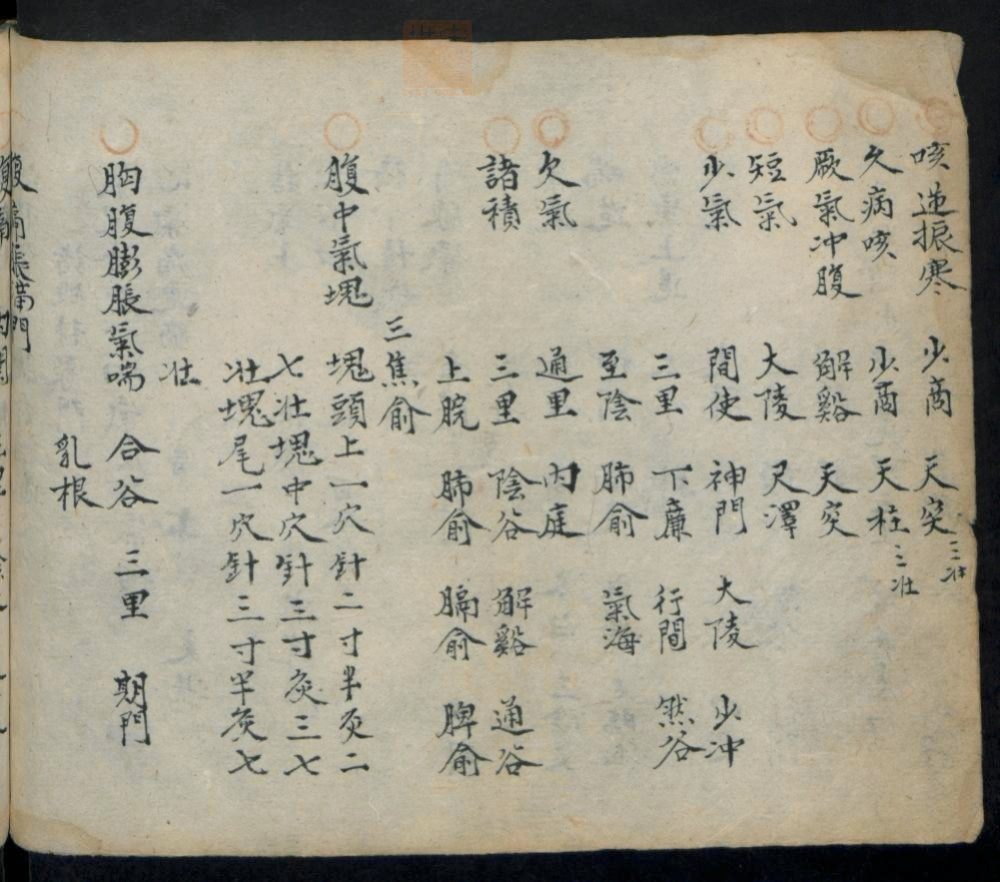 咳逆振寒 少商 天突三壯
久病咳 少商 天柱三壯
厥氣冲腹 解谿 天突
短氣 大陵 尺澤
少氣 間使 神門 大陵 少冲
三里 下廉 行間 然谷
至陰 肺俞 氣海
欠氣 通里 內庭
諸積 三里 陰谷 解谿 通谷
上脘 肺俞 膈俞 脾俞
三焦俞
腹中氣塊 塊頭上一穴針二寸半灸二
七壯塊中穴針三寸灸三七
壯塊尾一穴針三寸半灸七
壯
胸腹膨脹氣喘 合谷 三里 期門
乳根